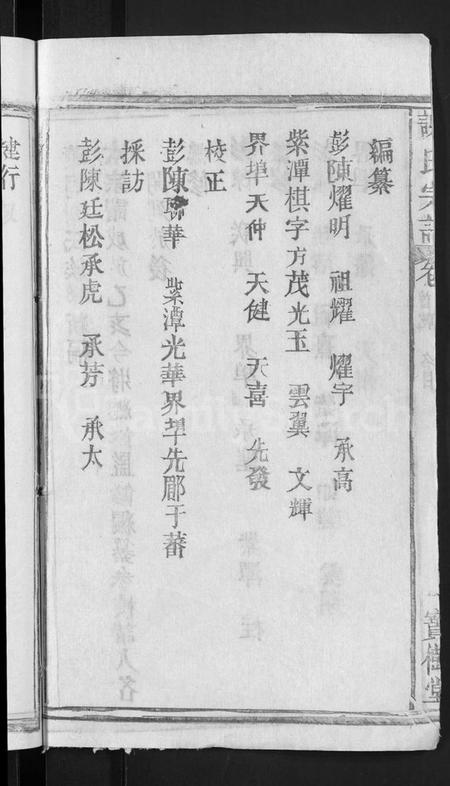 氏宗譜
卷首
寶樹堂
編纂
彭陳燿明 祖燿 燿宇 承高
紫潭棋字方茂光玉 雲翼 文輝
界埠天仲 天健 天喜 先發
校正
彭陳聯華 紫潭光華界埠先郿于蕃
採訪
彭陳廷松承虎 承芳 承太
建行